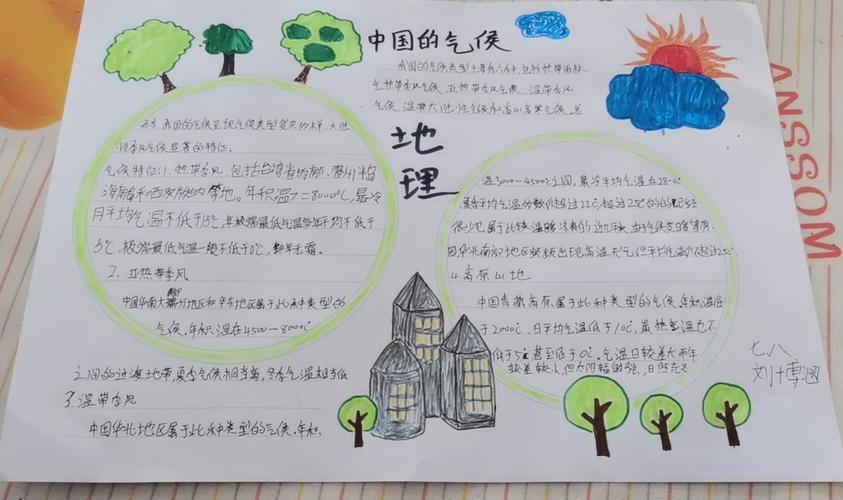 中国的气候
我国的气候类型主要有六种,包括热带雨林
气热带季风气候、亚热带季风气候、温带季风
气候、温带大陆性气候和高山高寒气候。总
地
理
而言,我国的气候呈现气候类型复杂多样,大陆
性季风气候显著的特征。
气候特征:1、热带季风,包括台湾省南部、雷州半岛
海南和西双版纳等地。年积温>=8000℃,最冷
月平均气温不低于15℃,年极端最低气温多年平均不低于
5℃,极端最低气温一般不低于0℃,整年无霜。
2、亚热带季风
中国华南大部分地区和华东地区属于此种类型的
气候。年积温在4500—8000℃
之间的过渡地带,夏季气候相当高,冬季气温相当低
3、温带季风
中国华北地区属于此种类型的气候。年积
温3000—4500℃之间,最冷平均气温在28-
最热平均气温多数不超过22℃,超过25℃的
很少
因华北南部地区频频出现高温天气但平均气温不超过25℃
4.高原山地
中国青藏高原属于此种类型的气候。年积温低
于2000℃,日平均气温低于10℃,最热气温也不
低于5℃甚至低于0℃。气温日较差大而年
较差较小,但太阳辐射强,日照充足
七八
刘博涵
ANSSOM